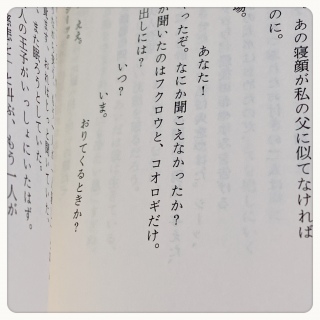 あの寝顔が私の父に似てなければ
のに。
場。
あなた!
ったぞ。なにか聞こえなかったか?
が聞いたのはフクロウと、コオロギだけ。
出しには?
いつ?
いま。
おりてくるときか?
ええ。
また眠ろうとしていた。
人の王子がいっしょにいたはず。
と叫ぶ、もう一人が